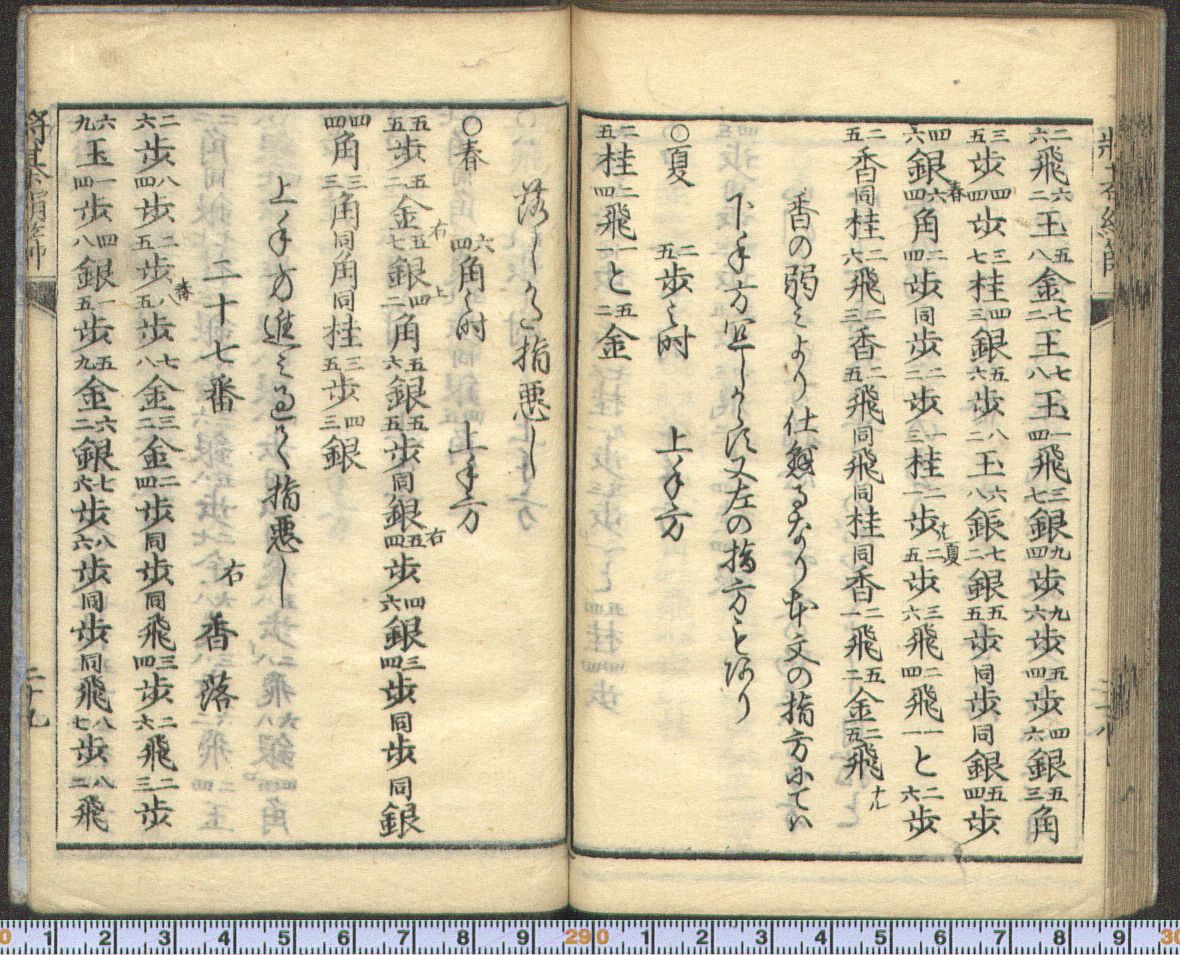 将棊絹篩
二十八
二六飛六二王五八金七二王七八王一四飛三七銀九四歩九六歩五四歩四六銀五三角
三五歩四四歩三七桂四三銀五六歩八二王六八銀七二銀五五歩同歩同銀五四歩
四六銀春六四角二四歩同歩二二歩一三桂二一歩ナル夏二五歩三六飛二四飛一一と二六歩
二五香同桂二六飛二三香二五飛同飛同桂同香二一飛五二金二五飛ナル
香の弱みより仕懸るなり本文の指方にてハ
下手方宜しからず又左の指方もあり
〇夏 二五歩之時 上手方
二五桂二四飛一一と五二金
指悪し
〇春 六四角之時 上手方
五五歩五二金右五七銀上四二角五六銀五五歩同銀五四歩右四六銀三四歩同歩同銀
四四角三三角同角同桂三五歩四三銀
上手方進み 指悪し
二十七番 右香落
二六歩八四歩二五歩八五歩七八金三二金二四歩同歩同飛三四歩二六飛二三歩
六九玉一四歩四八銀一五歩五九金六二銀七六歩八六歩同歩同飛八七歩八二飛
将棊絹篩
二十九